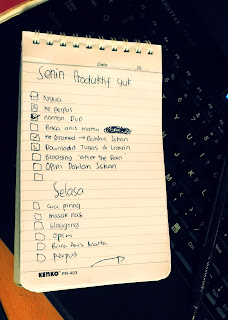 Date
20
Senin Produktif yuk
Nguci
ke perpus
nonton DVD
Baca anis matta
ke Gramed → Dahlan Iskan
Download Tugas &
Blogging "after the Rain
Opini Dahlan Iskan
Selasa
cuci piring
masak nasi
blogging
opini
Baca Anis Matta
perpus
KENKO PN-403